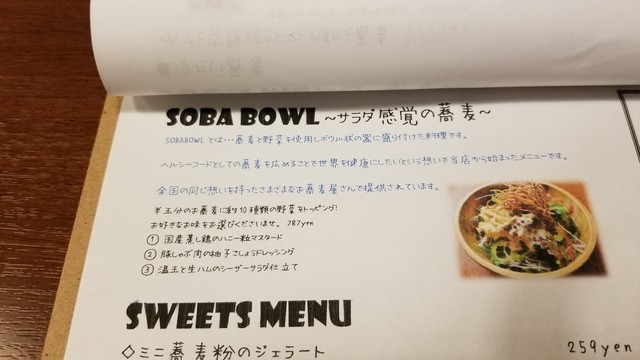 SOBA BOWL ～サラダ感覚の蕎麦～
SOBABOWL とは…蕎麦と野菜を使用しボウル状の器に盛り付けた料理です。
ヘルシーフードとしての蕎麦を広めることで世界を健康にしたいという想いで当店から始まったメニューです。
全国の同じ想いを持ったさまざまなお蕎麦屋さんで提供されています。
半玉分のお蕎麦に約10種類の野菜をトッピング!
お好きなお味をお選びくださいませ。787yen
① 国産蒸し鶏のハニー粒マスタード
② 豚しゃぶ肉の柚子こしょうドレッシング
③ 温玉と生ハムのシーザーサラダ仕立て
SWEETS MENU
◇ミニ蕎麦粉のジェラート 259yen